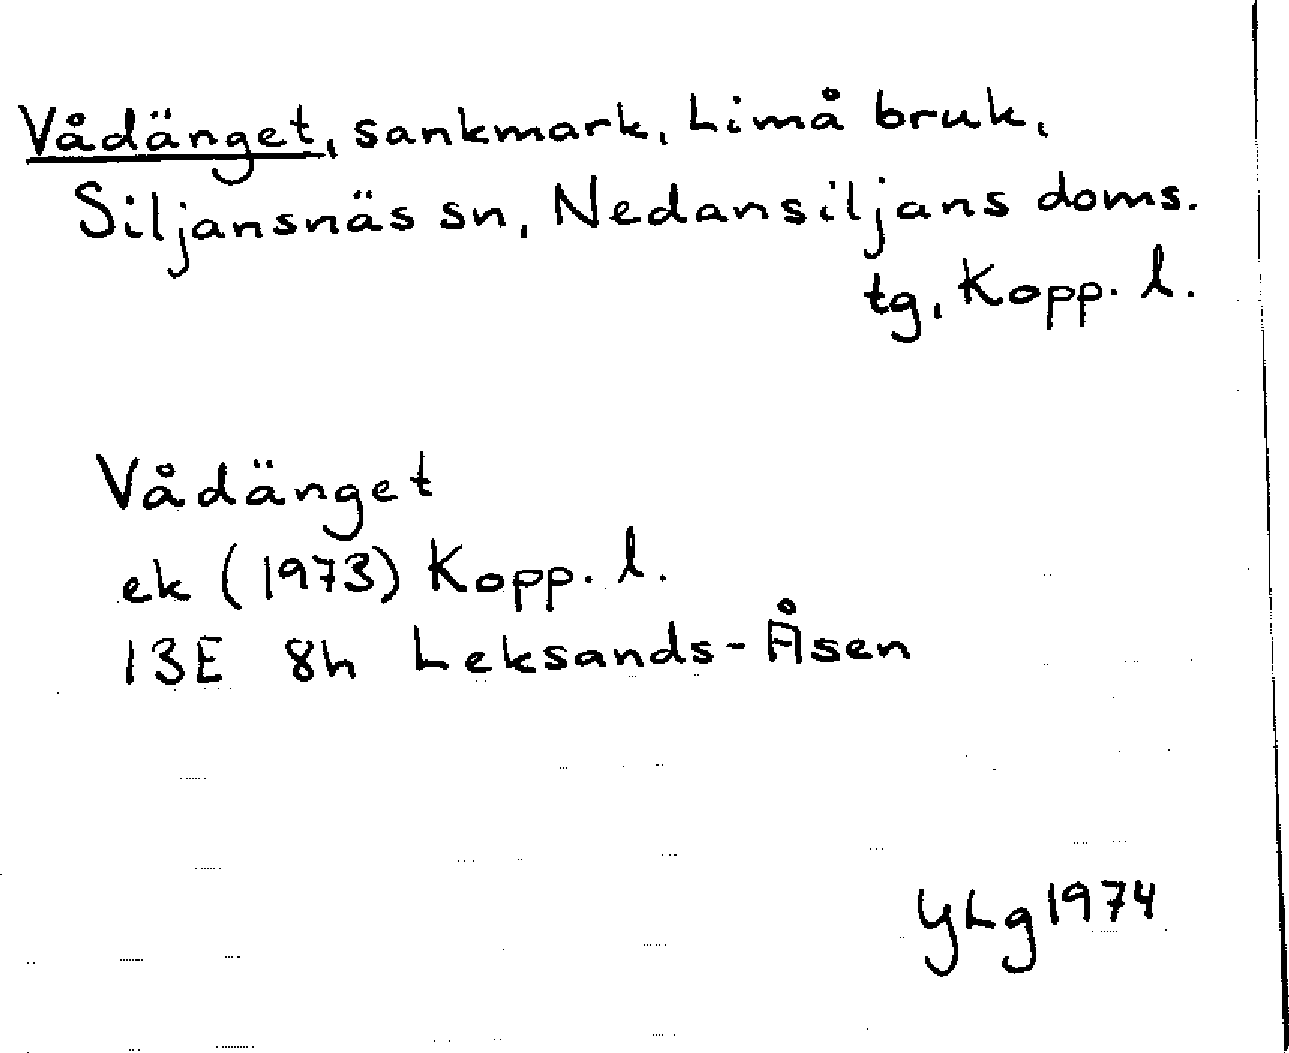 Vådänget, sankmark, Limå bruk,
Siljansnäs sn, Nedansiljans doms.
tg, Kopp. l.
Vådänget
ek (1973) Kopp. l.
13E 8h Leksands-Åsen
YLg 1974